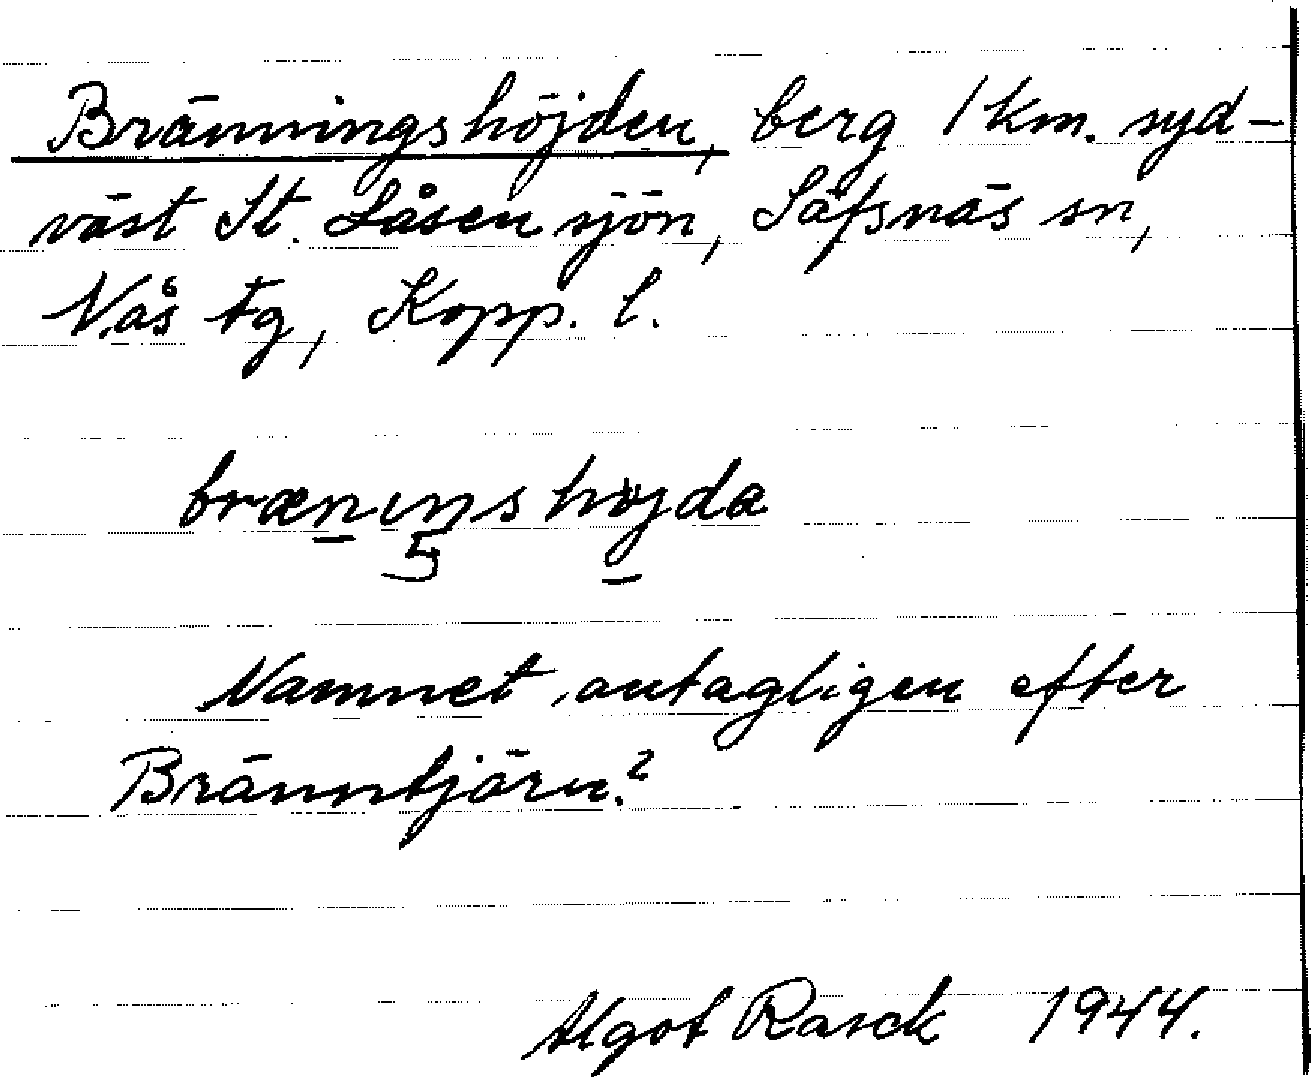 Bränningshöjden, berg 1 km. syd-
väst St. Låsen sjön, Säfsnäs sn,
Nås tg, Kopp. l.
bræniŋs höjda
Namnet antagligen efter
Bränntjärn.?
Algot Rasck 1944.